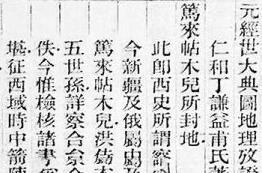 元經世大典圖地理攷證
仁和丁謙益甫氏著
篤來帖木兒所封地
此卽西史所謂察
今新疆及俄屬
篤來帖木兒洪
五世孫詳察合
佚今惟檢核諸書
征西域時中箭